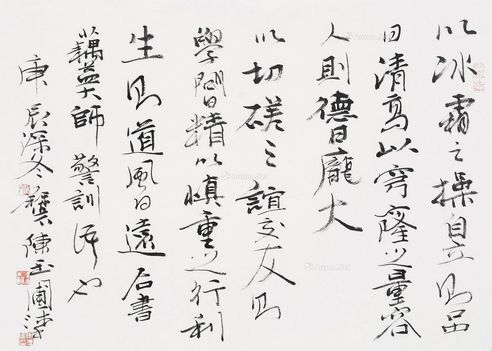 以冰霜之操自立則品
日清高以穹窿之量容
人則德日龐大
以切磋之誼交友則
學問日精以慎重之行利
生則道風日遠右書
以藕益大師警訓語也
庚辰深冬龔陳玉圃